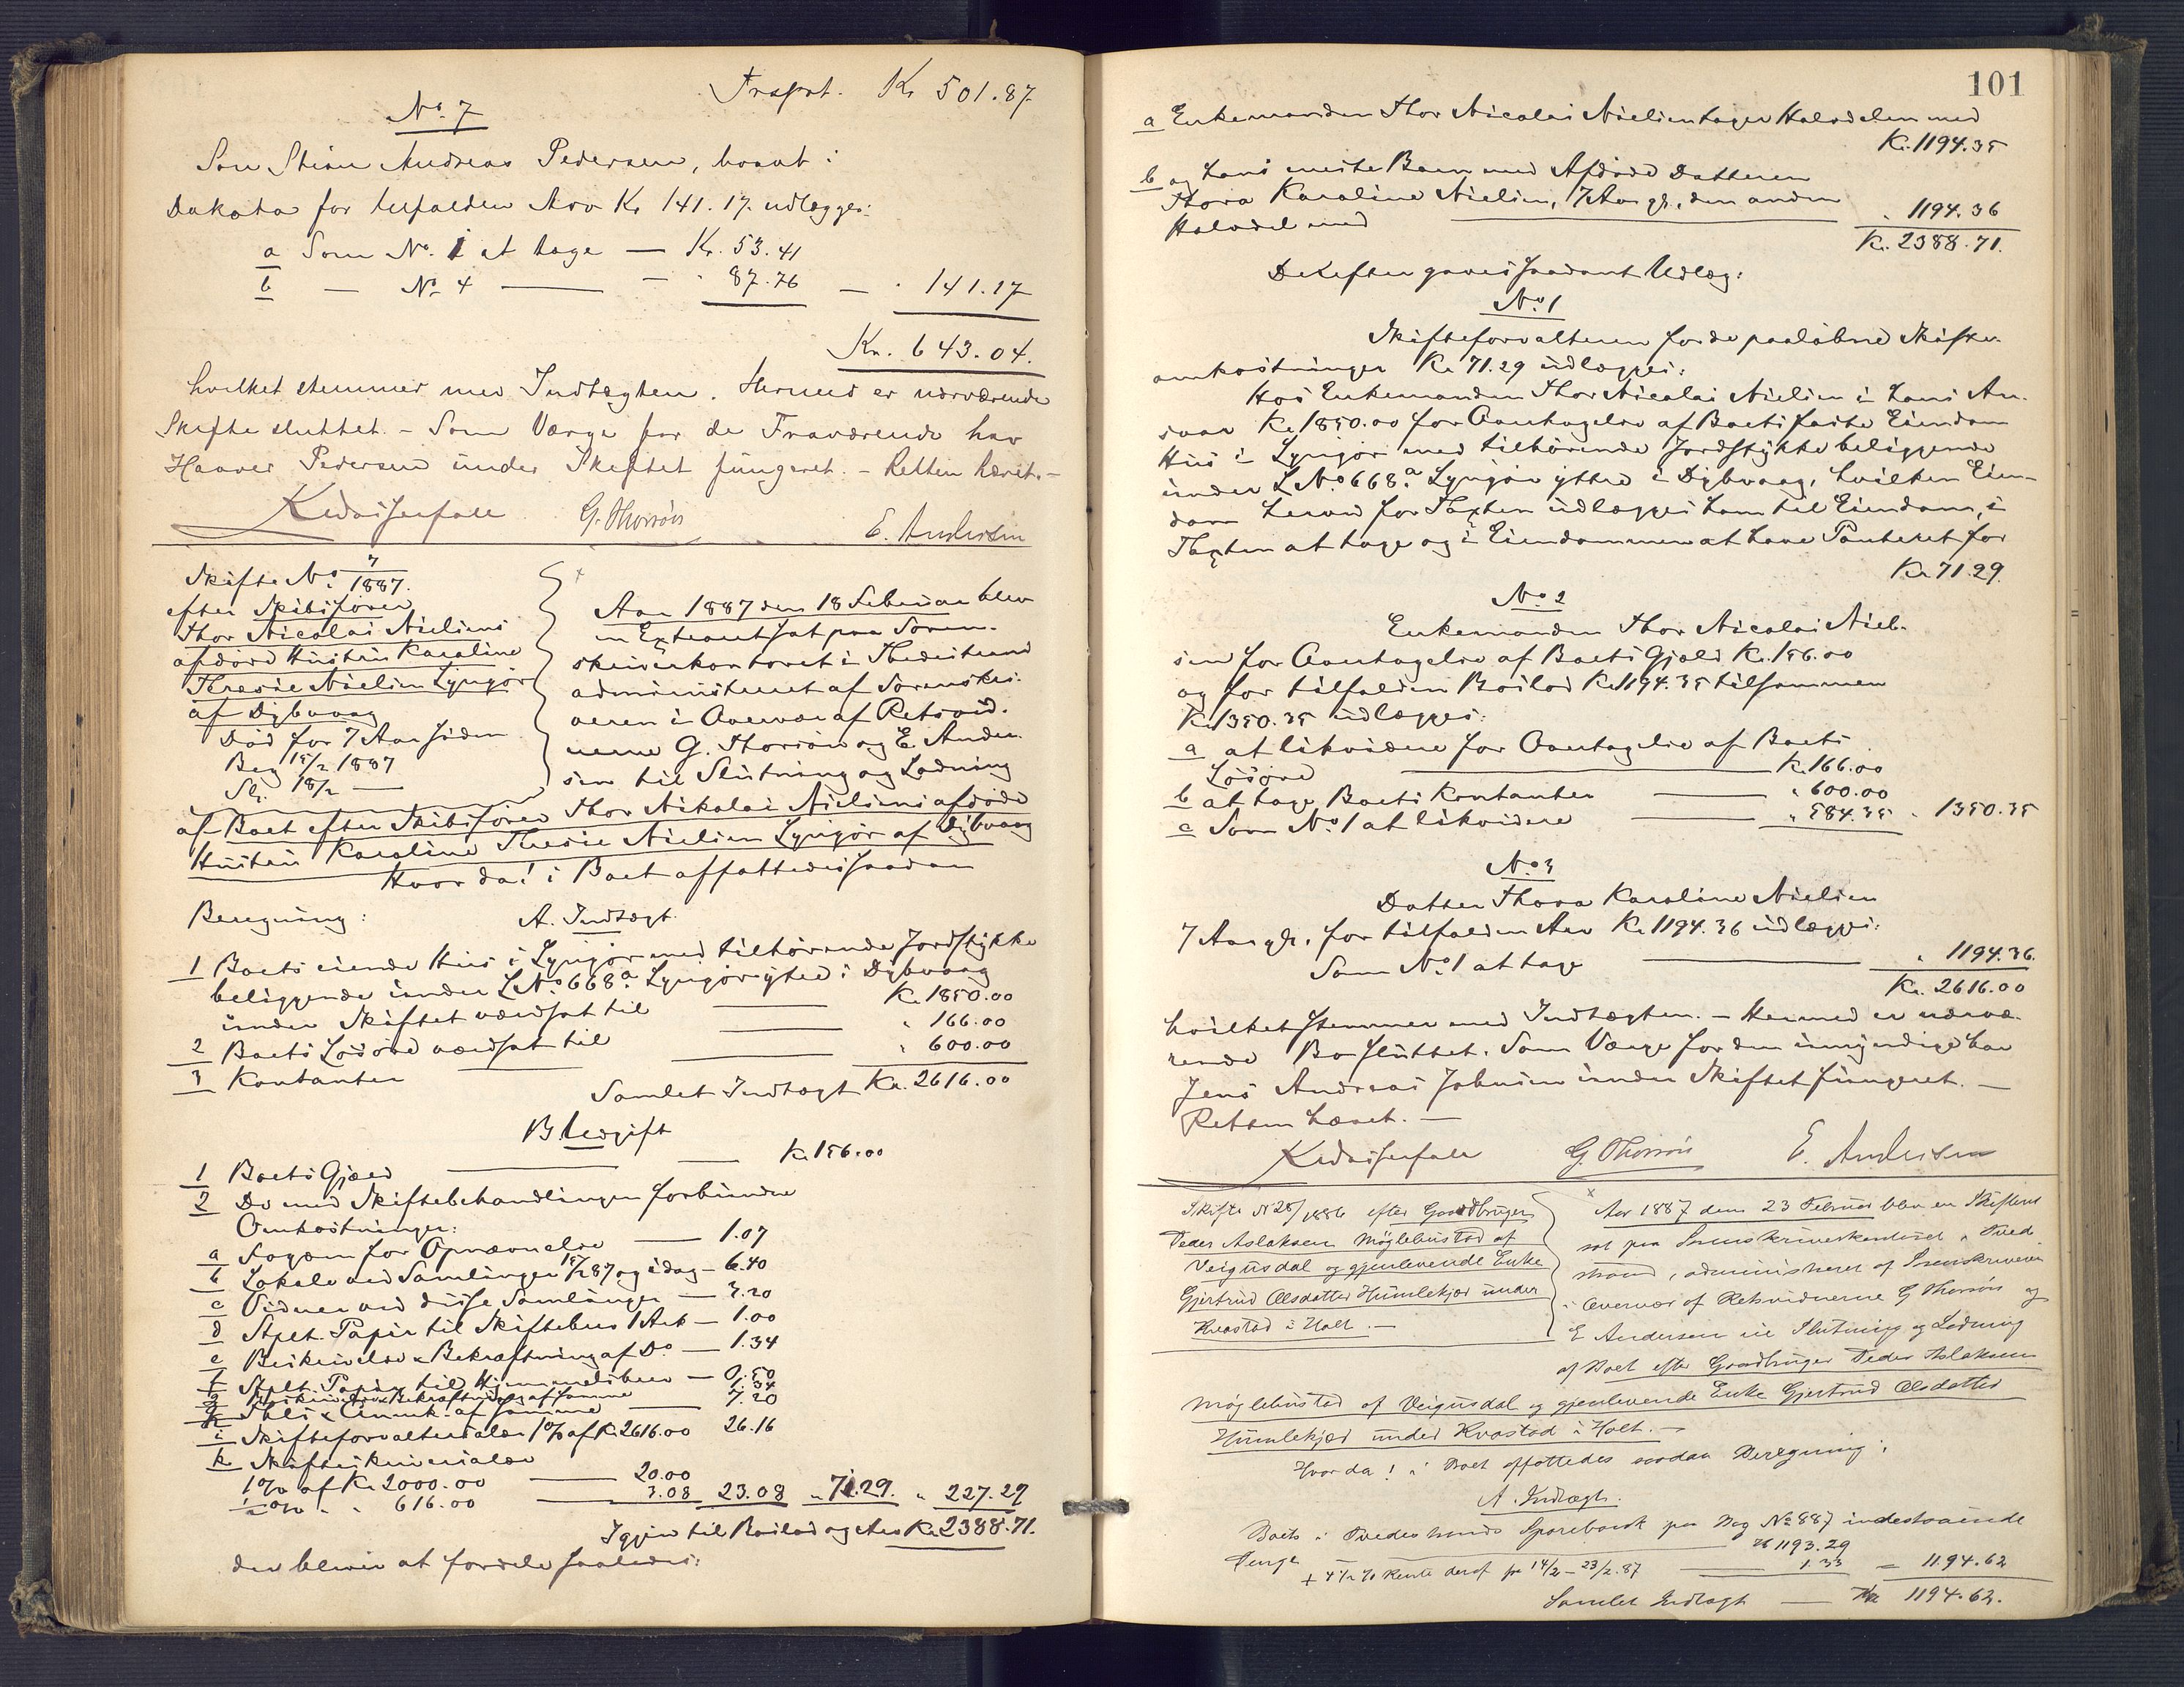 Trsprt. Kr 501.87
No. 7
Søn Stian Andreas Pedersen, bosat i
Dakota for tilfalden Arv Kr 141.17. udlægges:
a Som No. 1 at tage — Kr. 53.41
b — No. 4 — - 87.76 — - 141.17
Kr. 643.04.
hvilket stemmer med Indtægten. Hermed er nærværende
Skifte sluttet. - Som Værge for de Fraværende har
Haaver Pedersen under Skiftet fungeret. - Retten hævet. -
G. Thorsön E. Andersen
Skifte No. 7/1887.
efter Skibsfører
Thor Nicolai Nielsens
afdøde Hustru Karoline
Teresie Nielsen Lyngør
af Dybvaag
Død for 7 Aar siden
Beg 15/2 1887
Sl. 18/2 —
Aar 1887 den 18 Februar blev
en Extraret sat paa Soren-
skriverkontoret i Tvedestrand
administreret af Sorenskri-
veren i Overvær af Retsvid-
nerne G. Thorsön og E. Ander-
sen til Slutning og Lodning
af Boet efter Skibsfører Thor Nikolai Nielsens afdøde
Hustru Karoline Teresie Nielsen Lyngør af Dybvaag
Hvorda! i Boet affattedes saadan
Beregning:
A. Indtægt.
1 Boets eiende Hus i Lyngør med tilhørende Jordstykke
beliggende under LNo 668a Lyngør ytre i Dybvaag
under Skiftet værdsat til — Kr. 1850.00
2 Boets Løsøre værdsat til — " 166.00
3 Kontanter — " 600.00
Samlet Indtægt Kr. 2616.00
B. Udgift
1 Boets Gjæld — Kr. 156.00
2 Do med Skiftebehandlingen forbundne
Omkostninger:
a Fogden for Opnævnelse — 1.07
b Lokale ved Samlinger 15/2 87 og idag — 6.40
c Vidner ved disse Samlinger — 3.20
d Stplt. Papir til Skiftebrev 1 Ark — 1.00
e Beskrivelse & Bekræftning af Do — 1.34
f Stplt. Papir til Hjemmelsbrev — 0.50
g Beskrivelse & Bekræftning af samme 1.34
h af samme — 7.20
i Skifteforvaltersalær 1% af K. 2616.00 26.16
k Skifteskriversalær
1% af Kr 2000.00 — 20.00
½ % " " 616.00 — 3.08 23.08 " 71.29. " 227.29
Igjen til Boslod og Arv Kr. 2388.71.
der bliver at fordele saaledes:
101
a Enkemanden Thor Nicolai Nielsen tager Halvdelen med
Kr. 1194.35
b og hans eneste Barn med Afdøde Datteren
Thora Karoline Nielsen, 7 Aar gl., den anden
Halvdel med — " 1194.36
Kr. 2388.71.
Derefter gaves saadant Udlæg:
No. 1
Skifteforvalteren for de paaløbne Skifte-
omkostninger Kr 71.29 udlægges:
Hos Enkemanden Thor Nicolai Nielsen i hans An-
svar Kr. 1850.00 for Overtagelse af Boets faste Eiendom
Hus i Lyngør med tilhørende Jordstykke beliggende
under LNo 668a Lyngør ytre i Dybvaag, hvilken Eien-
dom herved for Taxten udlægges ham til Eiendom, i
Taxten at tage og i Eiendommen at have Panteret for
Kr 71.29.
No. 2
Enkemanden Thor Nicolai Niel-
sen for Overtagelse af Boets Gjæld Kr. 156.00
og for tilfalden Boslod Kr. 1194.35 tilsammen
Kr 1350.35 udlægges:
a at likvidere for Overtagelse af Boets
Løsøre — K. 166.00
b at tage, Boets Kontanter — " 600.00
c Som No. 1 at likvidere — " 584.35 " 1350.35
No. 3
Datter Thora Karoline Nielsen
7 Aar gl. for tilfalden Arv Kr 1194.36 udlægges:
Som No. 1 at tage — " 1194.36.
Kr. 2616.00
hvilket stemmer med Indtægten. — Hermed er nærvæ-
rende Bo sluttet. Som Værge for den umyndige har
Jens Andreas Johnsen under Skiftet fungeret. —
Retten hævet. —
G. Thorsön E. Andersen
Skifte N 28/1886 efter Gaardbruger
Peder Aslaksen Møglebustad af
Veigusdal og gjenlevende Enke
Gjertrud Olsdatter Humlekjær under
Kvastad i Holt. —
Aar 1887 den 23 Februar blev en Skifteret
sat paa Sorenskriverkontoret i Tvede-
strand, administreret af Sorenskriveren
i Overvær af Retsvidnerne G Thorsön og
E Andersen til Slutning og Lodning
af Boet efter Gaardbruger Peder Aslaksen
Møglebustad af Veigusdal og gjenlevende Enke Gjertrud Olsdatter
Humlekjær under Kvastad i Holt. —
Hvorda! i Boet affattedes saadan Beregning:
A. Indtægt.
Boets i Tvedestrands Sparebank paa Bog No 887 indestaaende
Penge — Kr 1193.29
+ 4½ % Rente deraf fra 14/2 – 23/2.87 — 1.33 — 1194.62
Samlet Indtægt — Kr 1194.62.